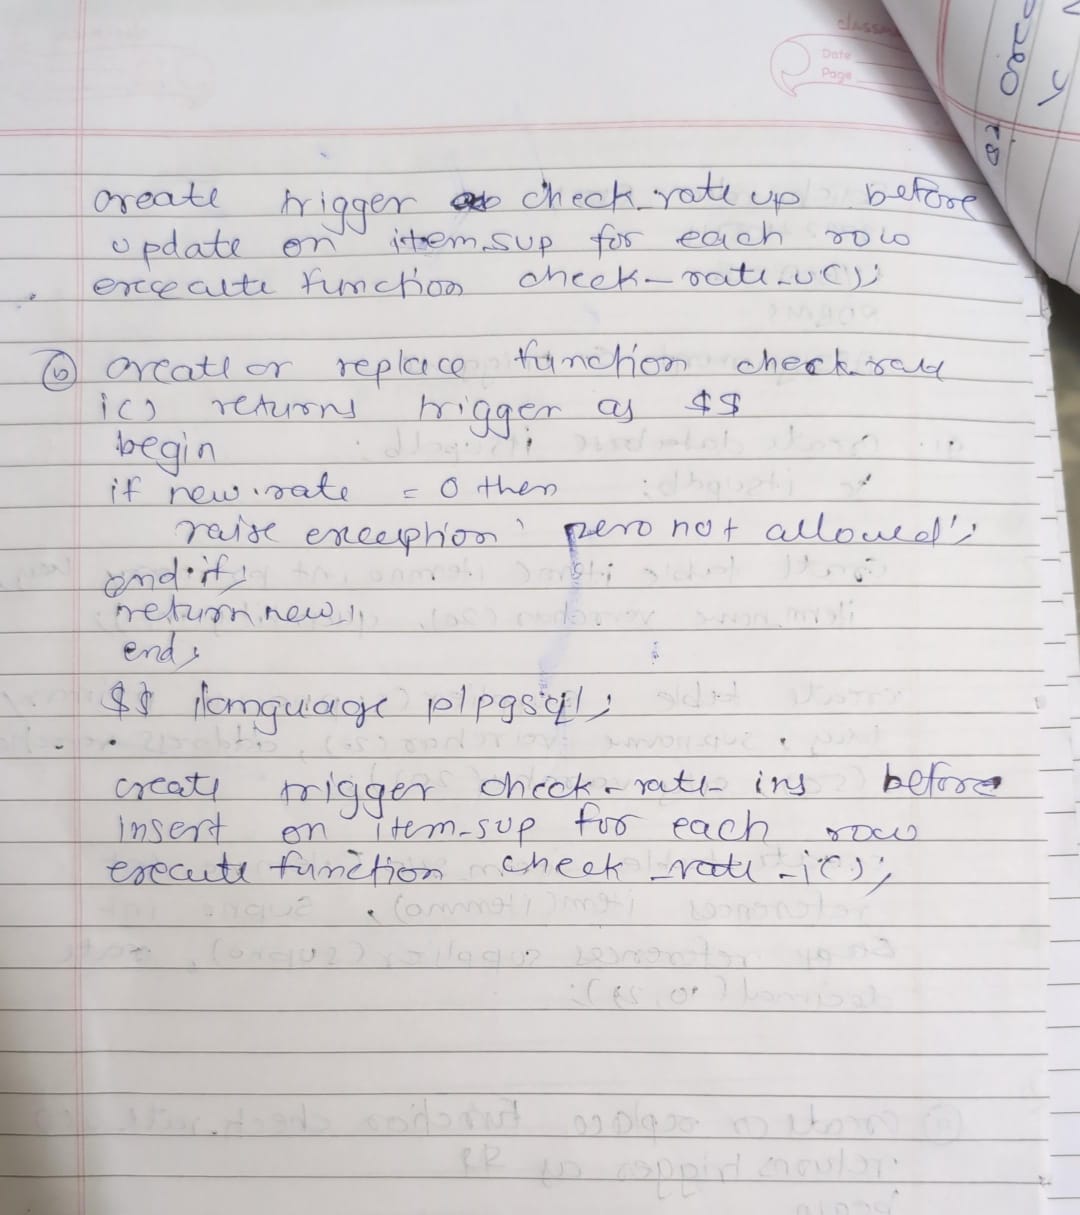 classm
Date
Page
create trigger check_rate up before
update on item_sup for each row
execute function check_rate_u();
(b) create or replace function check_rate
i() returns trigger as $$
begin
if new.rate = 0 then
raise exception 'zero not allowed';
end if;
return new;
end;
$$ language plpgsql;
create trigger check_rate_ins before
insert on item_sup for each row
execute function check_rate_i();